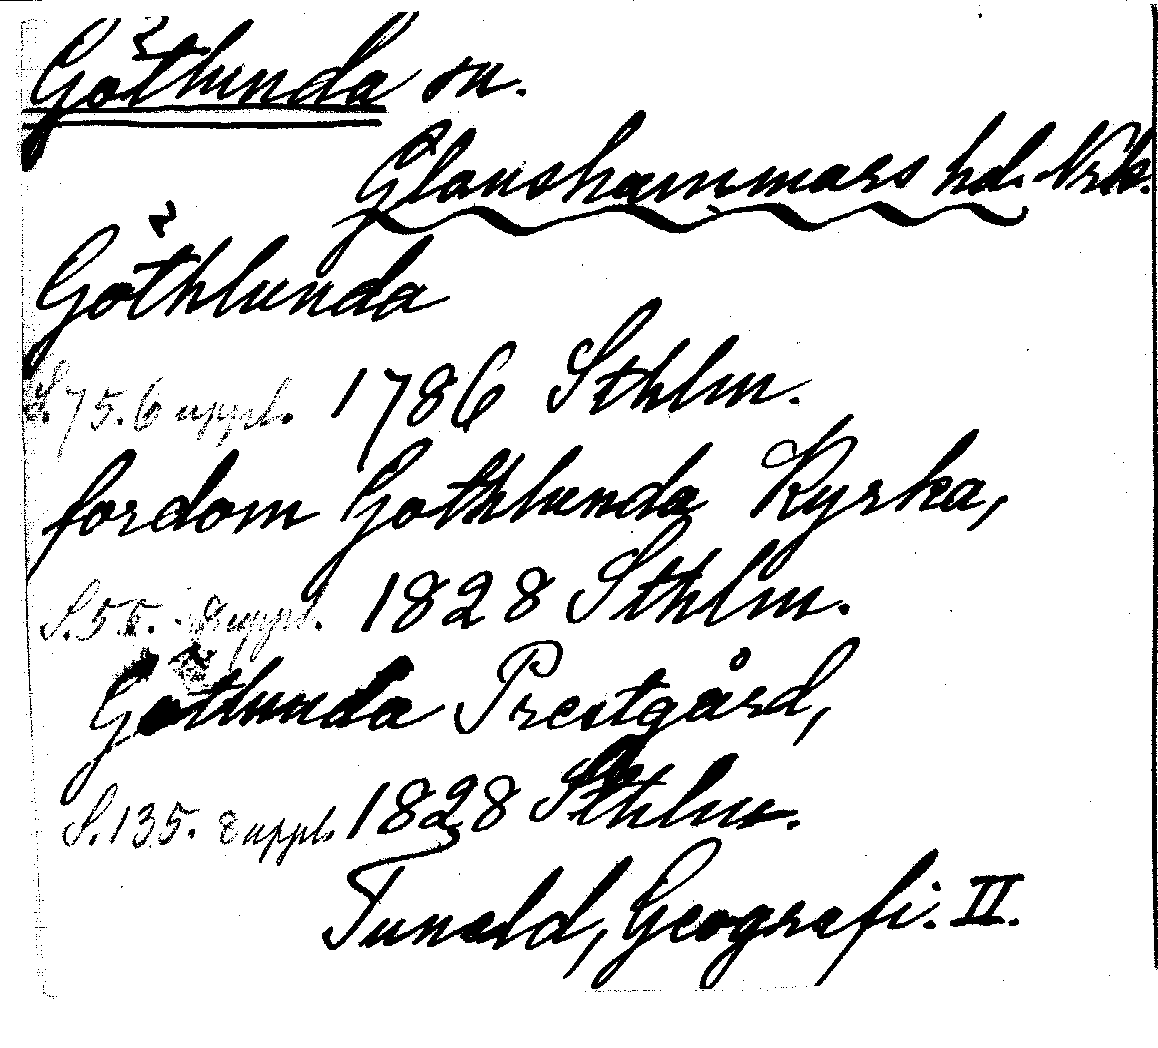 Götlunda sn.
Glanshammars hd. Nrk.
Göthlunda
S. 75. 6 uppl. 1786 Sthlm.
fordom Gothlunda Kyrka,
S. 55. 8 uppl. 1828 Sthlm.
Götlunda Prestgård,
S. 135. 8 uppl. 1828 Sthlm.
Tuneld, Geografi. II.